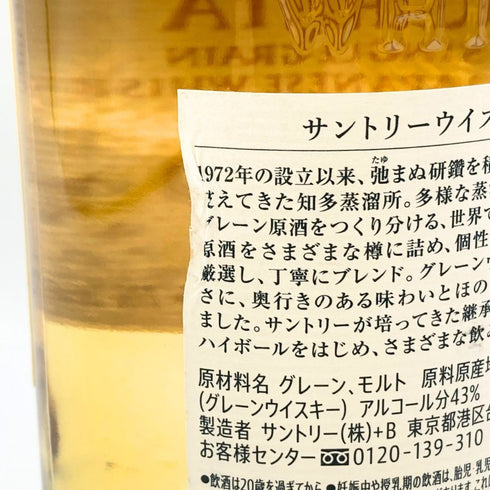 サントリーウイス
1972年の設立以来、弛まぬ研鑽を積
たゆ
えてきた知多蒸溜所。多様な蒸
グレーン原酒をつくり分ける、世界で
原酒をさまざまな樽に詰め、個性
厳選し、丁寧にブレンド。グレーンウ
さに、奥行きのある味わいとほの
ました。サントリーが培ってきた継承
ハイボールをはじめ、さまざまな飲
原材料名 グレーン、モルト 原料原産地
(グレーンウイスキー) アルコール分43%
製造者 サントリー(株)+B 東京都港区台
お客様センター 0120-139-310
●飲酒は20歳を過ぎてから ●妊娠中や授乳期の飲酒は、胎児・乳児